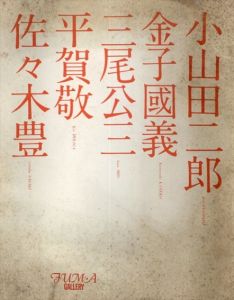 小山田二郎
金子國義
三尾公三
平賀敬
佐々木豊
FUMA
GALLERY